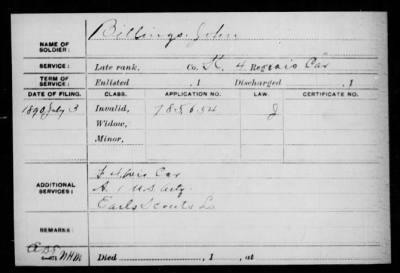 Billings, John
NAME OF
SOLDIER:
SERVICE:
Late rank, Co. K, 4 Reg't Wis Cav
TERM OF
SERVICE:
Enlisted , 1 Discharged , 1
DATE OF FILING. CLASS. APPLICATION NO. LAW. CERTIFICATE NO.
1890 July 3 Invalid, 785654 J
Widow,
Minor,
ADDITIONAL
SERVICES:
F 4 Wis Cav
A. 1 U.S. Arty
Earls Scouts La
REMARKS:
Died , 1 , at